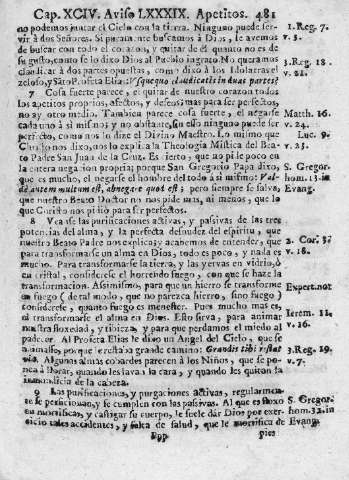 Cap. XCIV. Aviso LXXXIX. Apetitos. 481
no podemos juntar el Cielo con la tierra. Ninguno puede ser-
vir à dos Señores. Si puramente buscamos à Dios, le avemos
de buscar con todo el corazon, y quitar de él quanto no es de
su gusto, como se lo dixo Dios al Pueblo ingrato. No queramos
claudicar à dos partes opuestas, como dixo à los Idolatras el
zeloso, y Santo Profeta Elias: Usquequo claudicatis in duas partes?
1. Reg. 7.
v. 3.
3. Reg. 18.
v. 21.
7 Cosa fuerte parece, el quitar de nuestro corazon todos
los apetitos proprios, afectos, y desseos; mas para ser perfectos,
no ay otro medio. Tambien parece cosa fuerte, el negarse
cada uno à si mismo; y no obstante, sin ello ninguno puede ser
perfecto, como nos lo dize el Divino Maestro. Lo mismo que
Christo nos dixo, nos lo explica la Theologia Mistica del Bea-
to Padre San Juan de la Cruz. Es cierto, que no pide poco en
la entera negacion propria; porque San Gregorio Papa dixo,
que es mucho, el negarse el hombre del todo à si mismo: Val-
dè autem multum est, abnegare quod est; pero siempre se salva,
que nuestro Beato Doctor no nos pide mas, ni menos, que lo
que Christo nos pidio para ser perfectos.
Matth. 16.
v. 24.
Luc. 9.
v. 23.
S. Gregor.
hom. 32. in
Evang.
8 Vease las purificaciones activas, y passivas de las tres
potencias del alma, y la perfecta desnudez del espiritu, que
nuestro Beato Padre nos explica; y acabemos de entender, que
para transformarse un alma en Dios, todo es poco, y nada es
mucho. Para transformarse la tierra, y las yervas en vidrio, ò
en cristal, considerese el horrendo fuego, con que se haze la
transformacion. Assimismo, para que un hierro se transforme
en fuego (de tal modo, que no parezca hierro, sino fuego)
considerese, quanto fuego es menester. Pues mucho mas es,
el transformarse el alma en Dios. Esto sirva, para animar
nuestra floxedad, y tibieza, y para que perdamos el miedo al
padecer. Al Profeta Elias le dixo un Angel del Cielo, que se
animasse, porque le restaba grande camino: Grandis tibi restat
via. Algunas almas cobardes parecen à los Niños, que se po-
nen à llorar, quando les lavan la cara, y quando les quitan la
inmundicia de la cabeza.
2. Cor. 3.
v. 18.
Expert. not
Ierem. 11.
v. 16.
3. Reg. 19.
v. 7.
9 Las purificaciones, y purgaciones activas, regularmen-
te se perficionan, y se cumplen con las passivas. Al que es floxo
en mortificar, y castigar su cuerpo, le suele dàr Dios por exer-
cicio tales accidentes, y falta de salud, que le mortifica de
S. Gregor.
hom. 32. in
Evang.
Ppp
pies